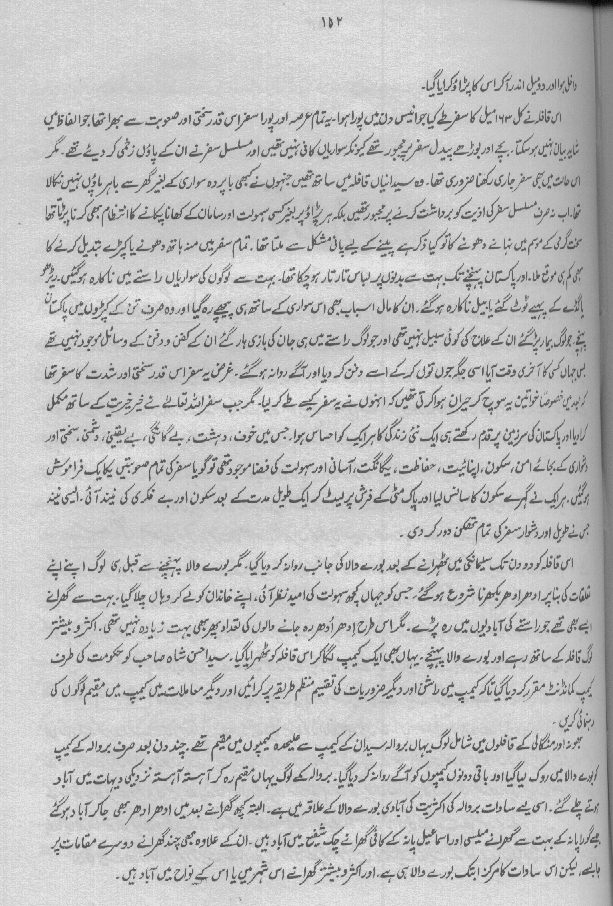 ۱۵۲
داخل ہوا اور دو میل اندر آ کر اس کا پڑاؤ کرایا گیا۔
اس قافلہ نے کل ۱۶۳ میل کا سفر طے کیا جو انیس دن میں پورا ہوا۔ یہ تمام عرصہ اور پورا سفر اس قدر سختی اور صعوبت سے بھرا تھا جو الفاظ میں
شاید بیان نہیں ہو سکتا۔ بچے اور بوڑھے پیدل سفر پر مجبور تھے کیونکہ سواریاں کافی نہیں تھیں اور مسلسل سفر نے ان کے پاؤں زخمی کر دیئے تھے۔ مگر
اس حالت میں بھی سفر جاری رکھنا ضروری تھا۔ وہ سیدانیاں قافلہ میں ساتھ تھیں جنہوں نے کبھی با پردہ سواری کے بغیر گھر سے باہر پاؤں نہیں نکالا
تھا۔ اب نہ صرف مسلسل سفر کی اذیت کو برداشت کرنے پر مجبور تھیں بلکہ ہر پڑاؤ پر بغیر کسی سہولت اور سامان کے کھانا پکانے کا انتظام بھی کرنا پڑتا تھا
سخت گرمی کے موسم میں نہانے دھونے کا تو کیا ذکر ہے پینے کے لیے پانی مشکل سے ملتا تھا۔ تمام سفر میں منہ ہاتھ دھونے یا کپڑے تبدیل کرنے کا
بھی کم ہی موقع ملا۔ اور پاکستان پہنچنے تک بہت سے بدنوں پر لباس تار تار ہو چکا تھا۔ بہت سے لوگوں کی سواریاں راستے میں ناکارہ ہو گئیں۔ ریڑھو
یا گڈے کے پہیے ٹوٹ گئے یا بیل ناکارہ ہو گئے۔ ان کا مال اسباب بھی اس سواری کے ساتھ ہی پیچھے رہ گیا اور وہ صرف تن کے کپڑوں میں پاکستان
پہنچے۔ جو لوگ بیمار پڑ گئے ان کے علاج کی کوئی سبیل نہیں تھی اور جو لوگ راستے میں ہی جان کی بازی ہار گئے ان کے کفن و دفن کے وسائل موجود نہیں تھے
بس جہاں کسی کا آخری وقت آیا اسی جگہ جوں توں کر کے اسے دفن کر دیا اور آگے روانہ ہو گئے۔ غرض یہ سفر اس قدر سختی اور شدت کا سفر تھا
کہ بعد میں خصوصاً خواتین یہ سوچ کر حیران ہوا کرتی تھیں کہ انہوں نے یہ سفر کیسے طے کر لیا۔ مگر جب سفر اللہ تعالےٰ نے خیر خیریت کے ساتھ مکمل
کرا دیا اور پاکستان کی سرزمین پر قدم رکھتے ہی ایک نئی زندگی کا ہر ایک کو احساس ہوا۔ جس میں خوف، دہشت، بے گانگی، بے یقینی، دشمنی، سختی اور
دشواری کے بجائے امن، سکون، اپنائیت، حفاظت، یگانگت، آسانی اور سہولت کی فضا موجود تھی تو گویا سفر کی تمام صعوبتیں یکایک فراموش
ہو گئیں۔ ہر ایک نے گہرے سکون کا سانس لیا اور پاک مٹی کے فرش پر لیٹ کر ایک طویل مدت کے بعد سکون اور بے فکری کی نیند آئی۔ ایسی نیند
جس نے طویل اور دشوار سفر کی تمام تھکن دور کر دی۔
اس قافلہ کو دو دن تک سلیمانکی میں ٹھہرانے کے بعد بورے والا کی جانب روانہ کر دیا گیا۔ مگر بورے والا پہنچنے سے قبل ہی لوگ اپنے اپنے
تعلقات کی بنا پر ادھر ادھر بکھرنا شروع ہو گئے۔ جس کو جہاں کچھ سہولت کی امید نظر آئی، اپنے خاندان کو لے کر وہاں چلا گیا۔ بہت سے گھرانے
ایسے بھی تھے جو راستے کی آبادیوں میں رہ پڑے۔ مگر اس طرح اِدھر اُدھر رہ جانے والوں کی تعداد پھر بھی بہت زیادہ نہیں تھی۔ اکثر و بیشتر
لوگ قافلہ کے ساتھ رہے اور بورے والا پہنچے۔ یہاں بھی ایک کیمپ لگا کر اس قافلہ کو ٹھہرایا گیا۔ سید احسن شاہ صاحب کو حکومت کی طرف
کیمپ کمانڈنٹ مقرر کر دیا گیا تاکہ کیمپ میں راشن اور دیگر ضروریات کی تقسیم منظم طریقہ پر کرائیں اور دیگر معاملات میں کیمپ میں مقیم لوگوں کی
رہنمائی کریں۔
بھونہ اور منگالی کے قافلوں میں شامل لوگ یہاں بروالہ سیدان کے کیمپ سے علیحدہ کیمپوں میں مقیم تھے۔ چند دن بعد صرف بروالہ کے کیمپ
کو بورے والا میں روک لیا گیا اور باقی دونوں کیمپوں کو آگے روانہ کر دیا گیا۔ بروالہ کے لوگ یہاں مقیم رہ کر آہستہ آہستہ نزدیکی دیہات میں آباد
ہوتے چلے گئے۔ اسی لیے سادات بروالہ کی اکثریت کی آبادی بورے والا کے علاقہ میں ہے۔ البتہ کچھ گھرانے بعد میں ادھر ادھر بھی جا کر آباد ہو گئے
جیسے کورا پانہ کے بہت سے گھرانے میلسی اور اسماعیل پانہ کے کافی گھرانے چک شفیع میں آباد ہیں۔ ان کے علاوہ بھی چند گھرانے دوسرے مقامات پر
جا بسے، لیکن اس سادات کا مرکز ابتک بورے والا ہی ہے۔ اور اکثر و بیشتر گھرانے اس شہر میں یا اس کے نواح میں آباد ہیں۔